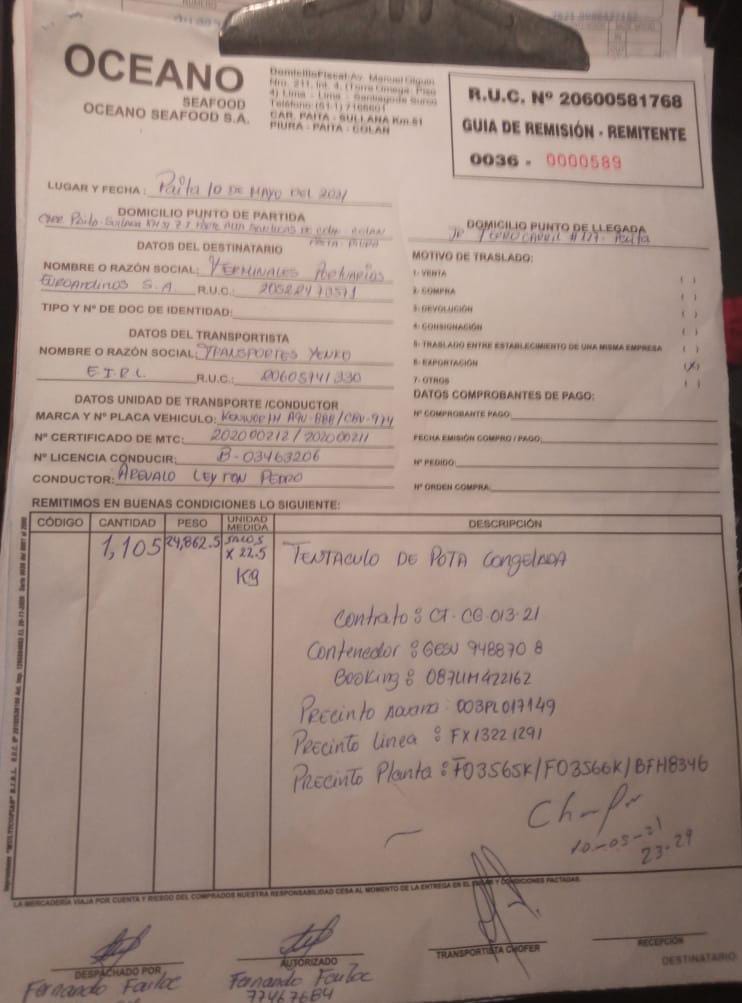 OCEANO
SEAFOOD
OCEANO SEAFOOD S.A.
Domicilio Fiscal: Av. Manuel Olguin
Nro. 211, Int. 4, (Torre Omega, Piso
4) Lima - Lima - Santiago de Surco
Teléfono: (51-1)
CAR. PAITA - SULLANA Km.51
PIURA - PAITA - COLAN
R.U.C. Nº 20600581768
GUIA DE REMISIÓN - REMITENTE
0036 - 0000589
LUGAR Y FECHA: Paita 10 DE MAYO DEL 2021
DOMICILIO PUNTO DE PARTIDA
DOMICILIO PUNTO DE LLEGADA
JR FERROCARRIL #127 - Paita
DATOS DEL DESTINATARIO
NOMBRE O RAZÓN SOCIAL: TERMINALES Portuarios
EUROAndinos S.A R.U.C.: 20522473571
TIPO Y Nº DE DOC DE IDENTIDAD:
MOTIVO DE TRASLADO:
1- VENTA ( )
2- COMPRA ( )
3- DEVOLUCIÓN ( )
4- CONSIGNACIÓN ( )
5- TRASLADO ENTRE ESTABLECIMIENTO DE UNA MISMA EMPRESA ( )
6- EXPORTACIÓN (X)
7- OTROS ( )
DATOS DEL TRANSPORTISTA
NOMBRE O RAZÓN SOCIAL: TRANSPORTES YENKO
E.I.R.L R.U.C.: 20605741330
DATOS UNIDAD DE TRANSPORTE /CONDUCTOR
MARCA Y Nº PLACA VEHICULO: KENWORTH
Nº CERTIFICADO DE MTC: 202000212 / 202000211
Nº LICENCIA CONDUCIR: B-03463206
CONDUCTOR: AREVALO LEYTON PEDRO
DATOS COMPROBANTES DE PAGO:
Nº COMPROBANTE PAGO:
FECHA EMISIÓN COMPRO / PAGO:
Nº PEDIDO:
Nº ORDEN COMPRA:
REMITIMOS EN BUENAS CONDICIONES LO SIGUIENTE:
CÓDIGO CANTIDAD PESO UNIDAD MEDIDA DESCRIPCIÓN
1,105 24,862.5 SACOS
X 22.5
Kg
TENTACULO DE POTA CongelADA
Contrato: CT-CG-013-21
Contenedor: GESU 948870 8
Booking: 087LIM422162
Precinto Aduana: 003PL017149
Precinto Linea: FX13221291
Precinto Planta: F03565K/F03566K/BFH8346
10-05-21
23-29
LA MERCADERÍA VIAJA POR CUENTA Y RIESGO DEL COMPRADOS NUESTRA RESPONSABILIDAD CESA AL MOMENTO DE LA ENTREGA EN EL LUGAR Y CONDICIONES PACTADAS.
DESPACHADO POR
AUTORIZADO
TRANSPORTISTA CHOFER
RECEPCIÓN
DESTINATARIO
Fernando
Fernando
77467684